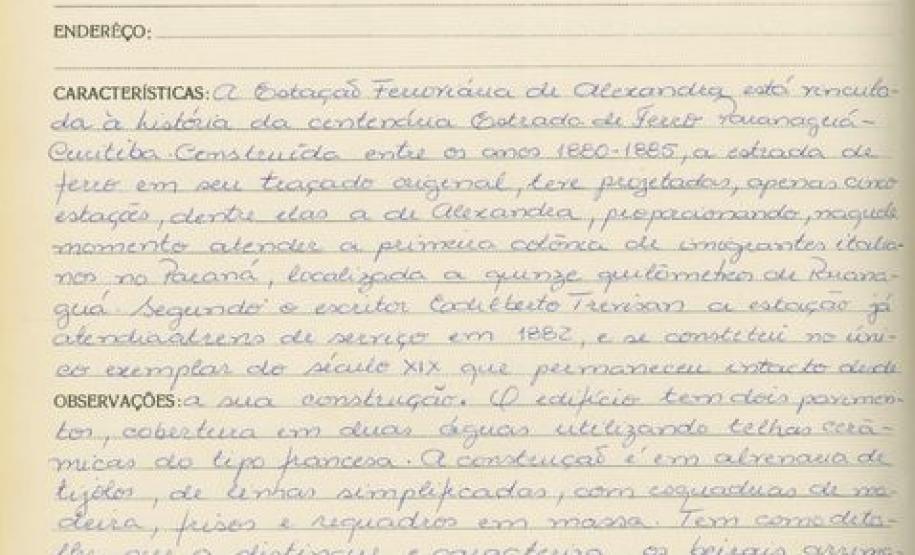 ENDERÊÇO:
CARACTERÍSTICAS: A Estação Ferroviária de Alexandra está vincula-
da à história da centenária Estrada de Ferro Paranaguá-
Curitiba. Construída entre os anos 1880-1885, a estrada de
ferro em seu traçado original, teve projetadas, apenas cinco
estações, dentre elas a de Alexandra, proporcionando, naquele
momento atender a primeira colônia de imigrantes italia-
nos no Paraná, localizada a quinze quilômetros de Parana-
guá. Segundo o escritor Edilberto Trevisan a estação já
atendia a trens de serviço em 1882, e se constitui no úni-
co exemplar do século XIX que permaneceu intacto desde
OBSERVAÇÕES: a sua construção. O edifício tem dois pavimen-
tos, cobertura em duas águas utilizando telhas cerâ-
micas do tipo francesa. A construção é em alvenaria de
tijolos, de linhas simplificadas, com esquadrias de ma-
deira, frisos e requadros em massa. Tem como deta-
lhe que a distingue e caracteriza, os beirais